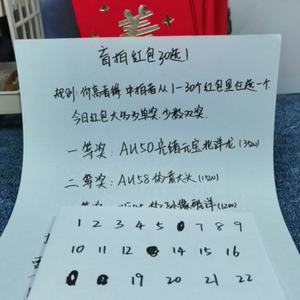 盲拍红包30选1
规则:价高者得 中拍者从1—30个红包里任选一个
今日红包大多多单奖 少数双奖
一等奖:AU50光绪元宝北洋龙(3500)
二等奖:AU58 大头(1500)
1 2 4 5 7 8 9
10 11 12 14 15 16
19 20 21 22